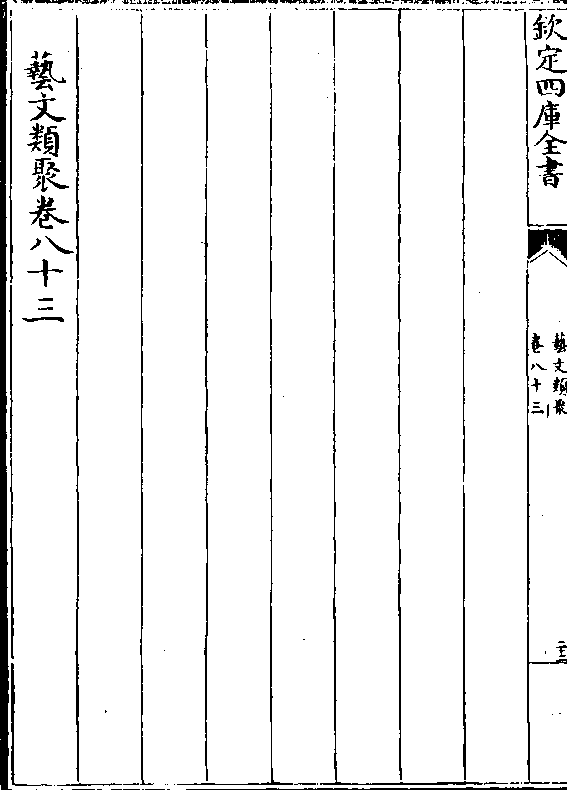 欽定四庫全書
藝文類聚
卷八十三
藝文類聚卷八十三